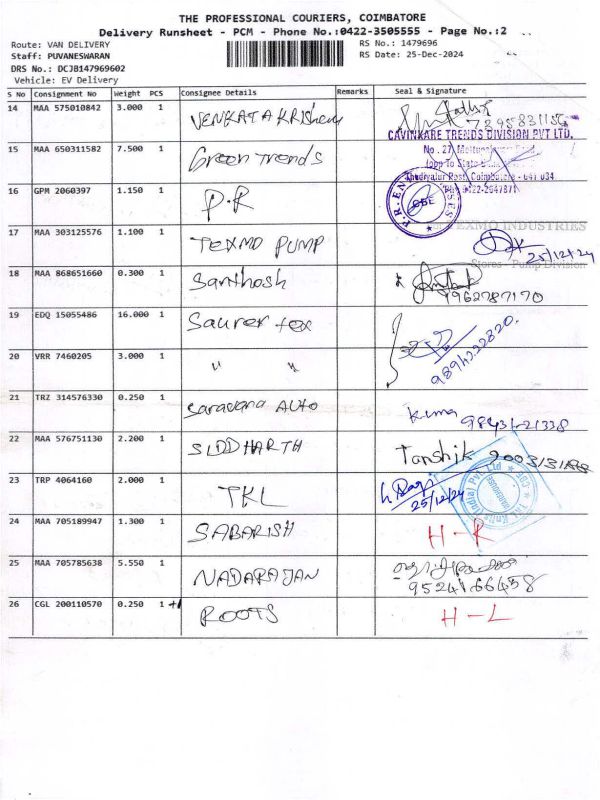 THE PROFESSIONAL COURIERS, COIMBATORE
Delivery Runsheet - PCM - Phone No.:0422-3505555 - Page No.:2
Route: VAN DELIVERY RS No.: 1479696
Staff: PUVANESWARAN RS Date: 25-Dec-2024
DRS No.: DCJB147969602
Vehicle: EV Delivery
S No Consignment No Weight PCS Consignee Details Remarks Seal & Signature
14 MAA 575010842 3.000 1 VENKATA KRISHen
7895831156
CAVINKARE TRENDS DIVISION PVT LTD.
15 MAA 650311582 7.500 1 Green Trends
No. 27,
Opp To State
Thudiyalur Post, Coimbatore - 641 034
Ph: 0422-2647871
16 GPM 2060397 1.150 1 P.R
CBE
TEXMO INDUSTRIES
17 MAA 303125576 1.100 1 TEXMO PUMP
25/12/24
Stores - Pump Division
18 MAA 868651660 0.300 1 Santhosh
9962787170
19 EDQ 15055486 16.000 1 Saurer tex
9894222820.
20 VRR 7460205 3.000 1 " "
21 TRZ 314576330 0.250 1 Saravana AUTO
Kuma 98431-21338
22 MAA 576751130 2.200 1 SIDDHARTH
Tanshik
23 TRP 4064160 2.000 1 TKL
25/12/24
24 MAA 705189947 1.300 1 SABARISH H-R
25 MAA 705785638 5.550 1 NADARAJAN
9524166458
26 CGL 200110570 0.250 1 +1 ROOTS H-L